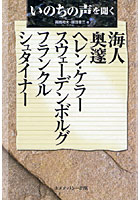 いのちの声を聞く
海人
奥邃
ヘレン・ケラー
スウェーデンボルグ
フランクル
シュタイナー